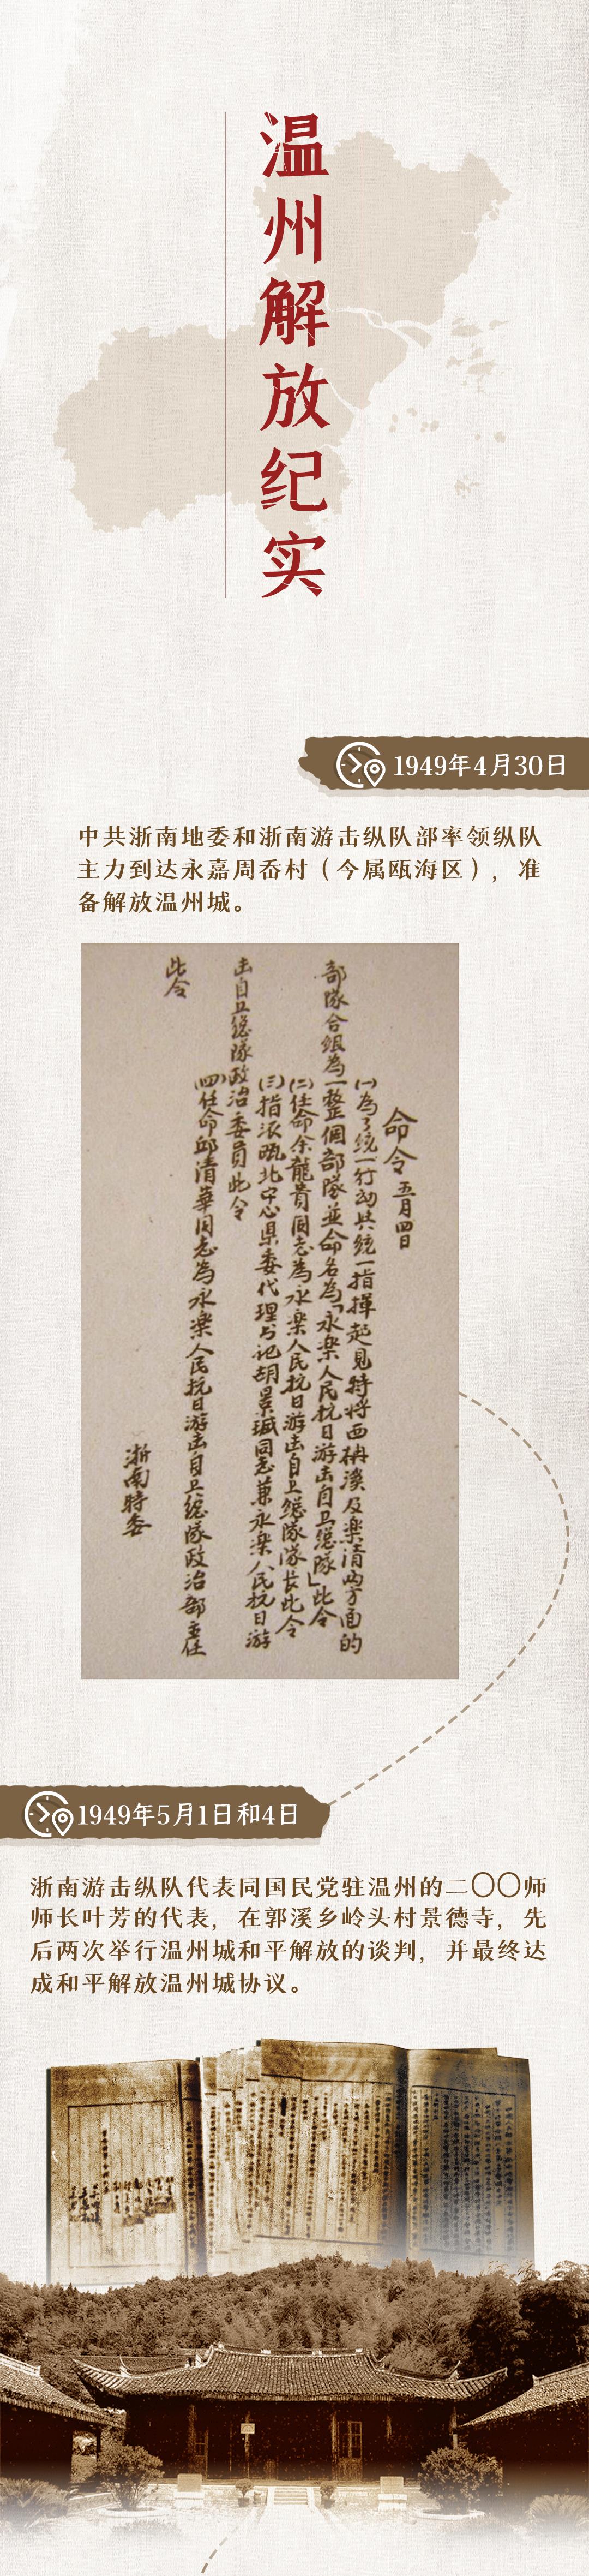 温州解放纪实
1949年4月30日
中共浙南地委和浙南游击纵队部率领纵队
主力到达永嘉周岙村（今属瓯海区），准
备解放温州城。
命令 五月四日
(一)为了统一行动与统一指挥起见特将西楠溪及樂清两方面的
部隊合组為一整個部隊並命名為「永楽人民抗日游击自卫總隊」此令
(二)任命余龍贵同志為永楽人民抗日游击自卫總隊隊长此令
(三)指派瓯北中心県委代理书记胡景瑊同志兼永楽人民抗日游
击自卫總隊政治委員此令
(四)任命邱清華同志為永楽人民抗日游击自卫總隊政治部主任
此令
浙南特委
1949年5月1日和4日
浙南游击纵队代表同国民党驻温州的二〇〇师
师长叶芳的代表，在郭溪乡岭头村景德寺，先
后两次举行温州城和平解放的谈判，并最终达
成和平解放温州城协议。